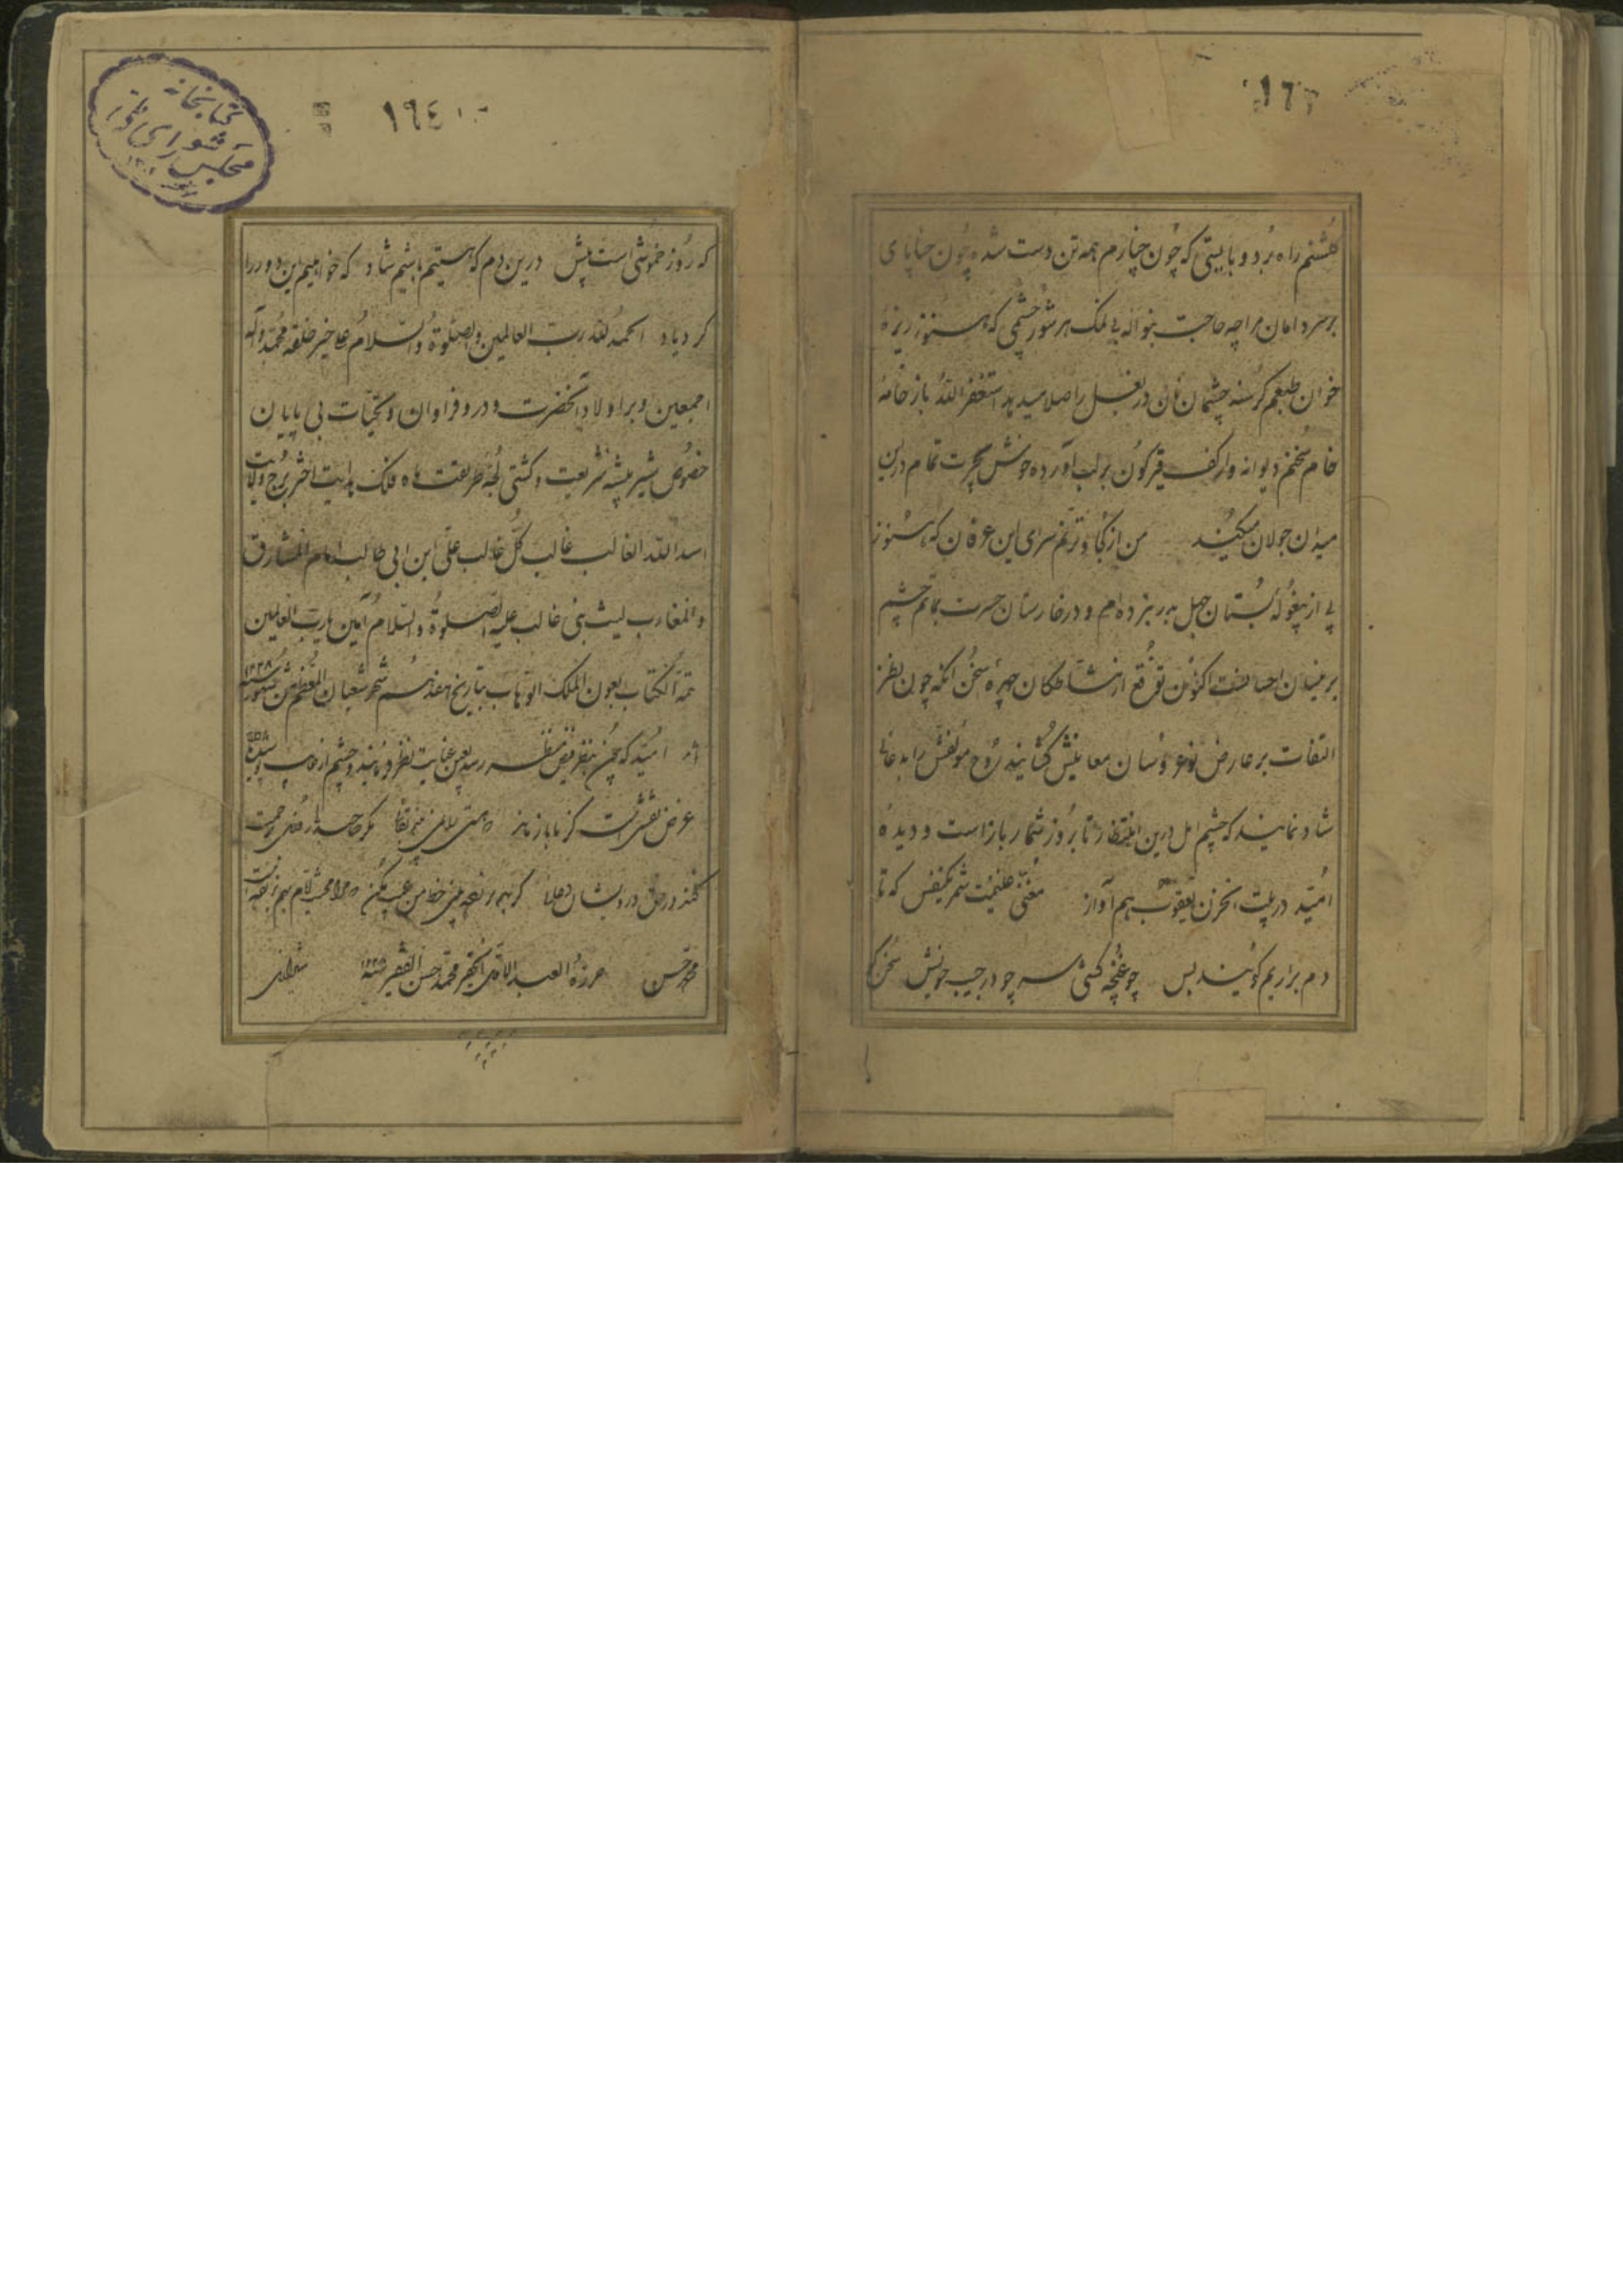 ١٦٣
گلشنم راه بُرد و بایستی که چون چنارم همه تن دست شده چون حنا پای
بر سر دامان مرا چه حاجت بنواله بی نمک هر شور چشمی که هنوز ریزهٔ
خوان طبعم گرسنه چشمان نان در بغل را صلا میدهد استغفر الله باز خامهٔ
خام سخنم دیوانه وار کف قیرگون بر لب آورده خوش بجرت تمام درین
میدان جولان میکند من از کجا و ترنم سرای این عرفان که هنوز
پی از بیغولهٔ بُستان جهل بدر نزده‌ام و در خارستان حسرت بماتم چشم
بر میدان اکنون توقع از مشاطگان چهرهٔ سخن آنکه چون نظر
التفات بر عارض نوعروسان معانیش گشایند روح مولفش را بدعائی
شاد نمایند که چشم امل درین انتظار تا بروز شمار باز است و دیدهٔ
امید در بیت الحزن یعقوب هم آواز مغنی غنیمت شمر یکنفس که تا
دم برآریم گویند بس چو غنچه کشی سر چو در جیب خویش سخن کن
کتابخانه
مجلس شورای ملی
١٦٤
که روز خموشی است پیش درین دم که هستیم باشیم شاد که خواهیم این دور را
کرد یاد الحمد لله رب العالمین والصلوة والسلام علی خیر خلقه محمد وآله
اجمعین و بر اولاد آنحضرت و درود فراوان و تحیات بی پایان
خصوص شیر بیشه شریعت و کشتی لجه طریقت ماه فلک هدایت اختر برج ولایت
اسد الله الغالب غالب کل غالب علی ابن ابی طالب امام المشارق
والمغارب لیث بنی غالب علیه الصلوة والسلام آمین یارب العالمین
تمة الکتاب بعون الملک الوهاب بتاریخ هفدهم شهر شعبان المعظم من شهور سنه ١٢٣٨
امید که چون بنظر فیض منظر رسد بعین عنایت نظر فرمایند و چشم از
غرض نقشی است کز ما باز ماند که هستی را نمی بینم بقائی مگر صاحبدلی روزی برحمت
کند در حق درویشان دعائی
محمد حسن حرره العبد الاقل الحقیر محمد حسن الفقیر سنه